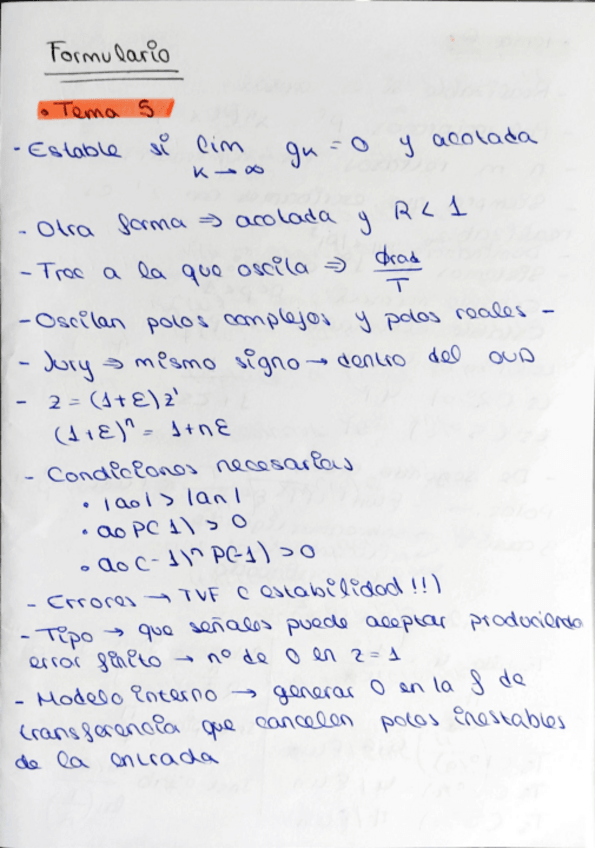 Formulario
• Tema 5
- Estable si lim gk = 0 y acotada
k → ∞
- Otra forma ⇒ acotada y R < 1
- Frec a la que oscila ⇒ φrad
T
- Oscilan polos complejos y polos reales -
- Jury ⇒ mismo signo → dentro del
- z = (1+ε)z'
(1+ε)ⁿ = 1+nε
- Condiciones necesarias
• |a0| > |an|
• a0 P(1) > 0
• a0 (-1)ⁿ P(-1) > 0
- Errores → TVF (estabilidad!!)
- Tipo → que señales puede aceptar produciendo
error finito → nº de 0 en z = 1
- Modelo interno → generar 0 en la f de
transferencia que cancelen polos inestables
de la entrada